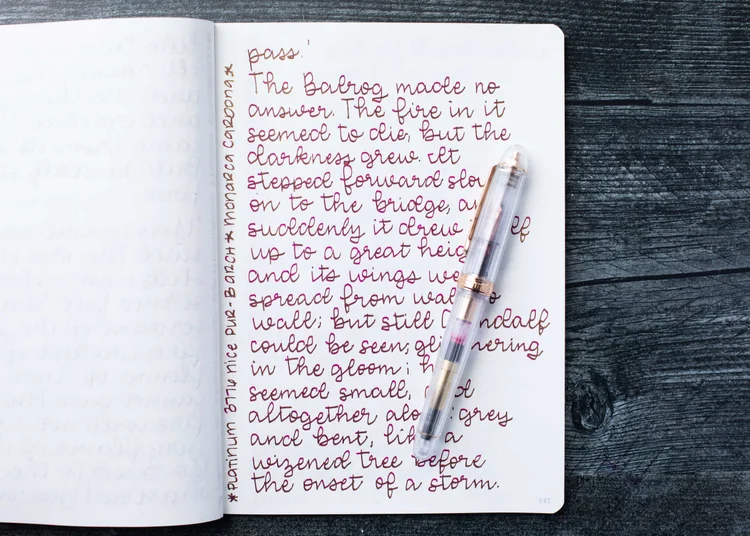 pass.'
The Balrog made no
answer. The fire in it
seemed to die, but the
darkness grew. It
stepped forward slow
on to the bridge, a
suddenly it drew elf
up to a great heig
and its wings we
spread from wal o
wall; but still G ndalf
could be seen, gli mering
in the gloom; h
seemed small, d
altogether alo : grey
and bent, lik a
wizened tree before
the onset of a storm.
*Platinum 3776 Nice Pur - Barch * Monarca Cardona*
147